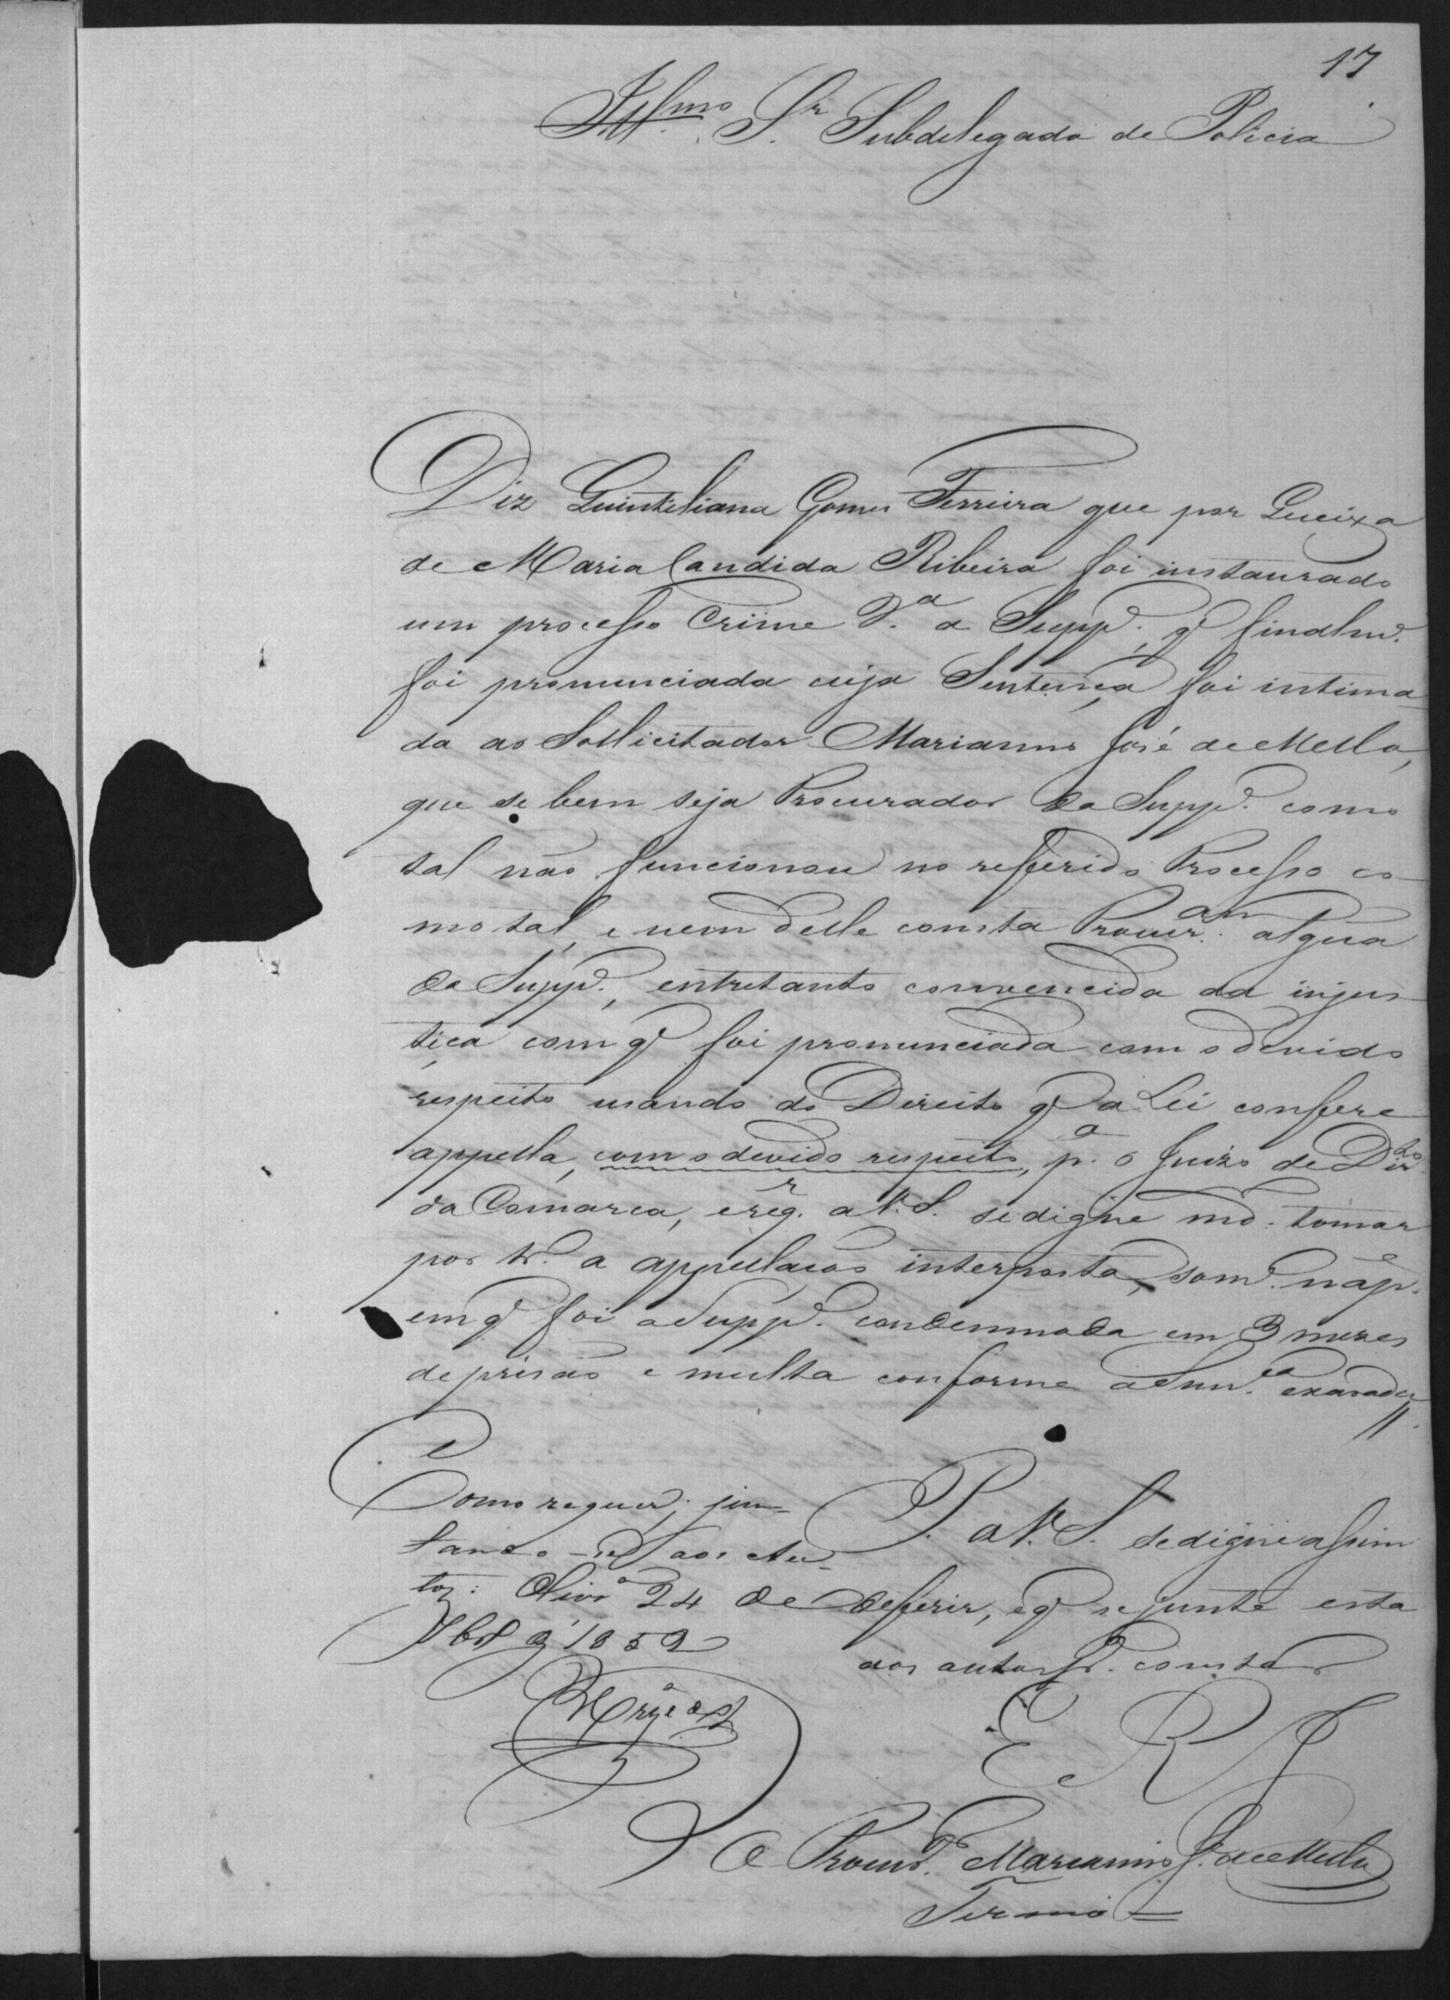 17
Illmo Sr Subdelegado de Policia
Diz Quintiliana Gomes Ferreira que por Queixa
de Maria Candida Ribeira foi instaurado
um processo Crime Va a Suppe. q finalme.
foi pronunciada cuja Sentença foi intima-
da ao Sollicitador Marianno José de Mello,
que se bem seja Procurador da Suppe. como
tal não funcionou no referido Processo co-
mo tal, e nem delle consta Procuram. algua
da Suppe., entretanto convencida da injus-
tiça com q foi pronunciada com o devido
respeito usando do Direito q a Lei confere
appella, com o devido respeito, pa. o Juizo de Dirto
da Comarca, e reqr. a V. S. se digne md. tomar
por tr. a appellacão interposta, some. na pe.
em q foi a Suppe. condemnada em 3 mezes
de prisão e multa conforme a Senca. exarada //.
P. a V. S. se digne assim
deferir, e q se junte esta
aos autos pa. constar
E R J
O Procurdor. Marianno J. de Mello
Como requer; jun-
tando-se aos Au-
tos: Olivra 24 de
7bro d 1859
Termo =